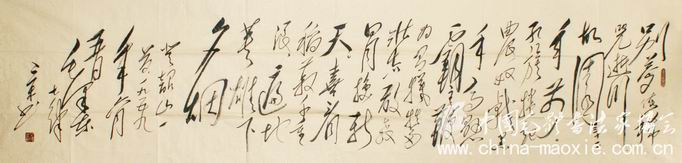 别梦依稀
咒逝川
故园三十二
年前
红旗卷起
农奴戟黑
手高悬
霸主鞭
为有牺牲多
壮志敢教
日月换新
天喜看
稻菽千重
浪遍地
英雄下
夕烟
韶山一
首一九五九
年六月
毛泽东
七律
www.china-maoxie.com.cn